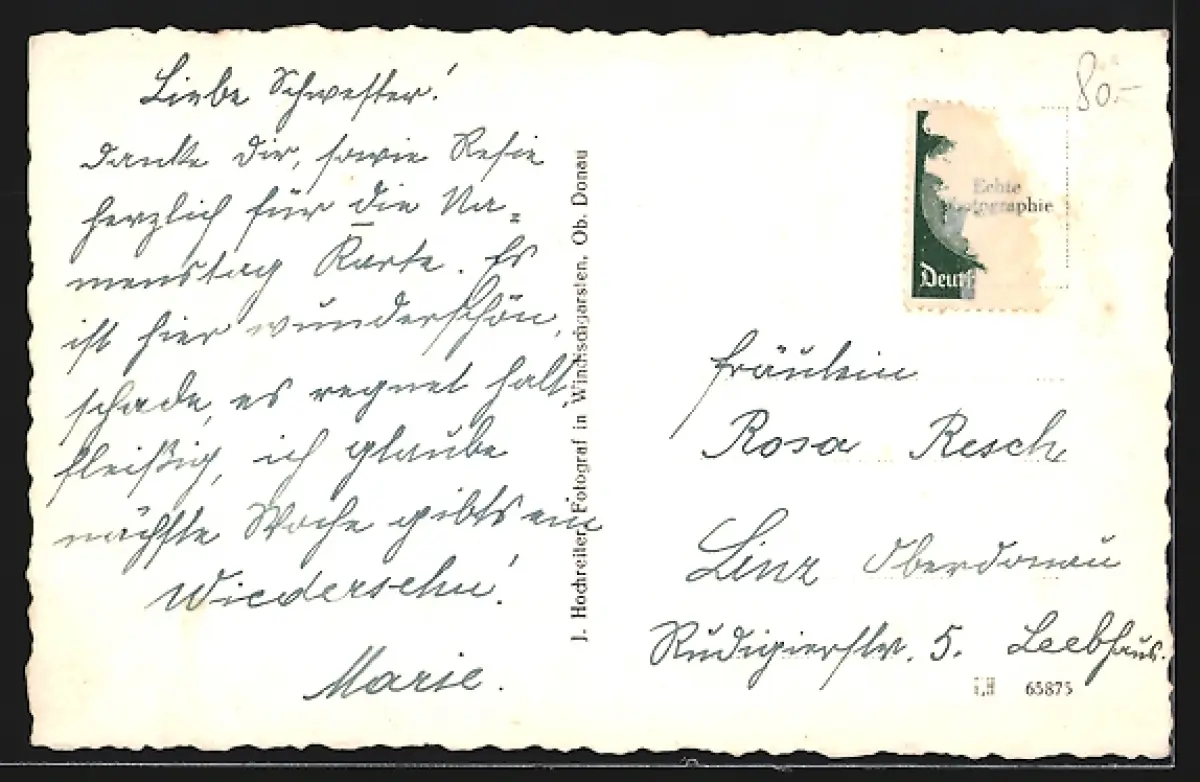 Liebe Schwester!
Danke dir, sowie Resie
herzlich für die Na=
menstag Karte. Es
ist hier wunderschön,
schade, es regnet halt
fleißig, ich glaube
nächste Woche gibts ein
Wiedersehn!
Marie.
J. Hochreiter, Fotograf in Windischgarsten, Ob. Donau
80.-
Echte
Photographie
Deut
Fräulein
Rosa Resch
Linz Oberdonau
Rudigierstr. 5. Leebhaus.
65875